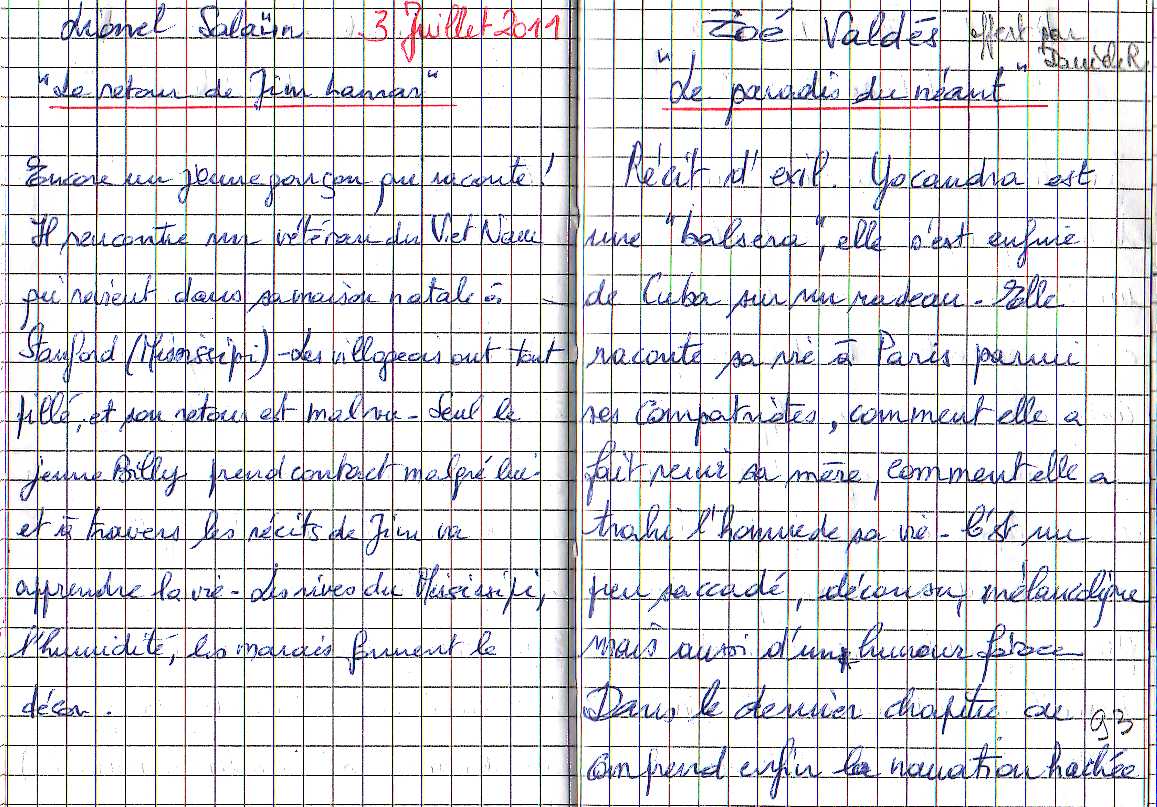 Lionel Salaün 3 Juillet 2011
"Le retour de Jim Lamar"
Encore un jeune garçon qui raconte !
Il rencontre un vétéran du Viet Nam
qui revient dans sa maison natale à
Stanford (Mississipi) - Les villageois ont tout
pillé, et son retour est mal vu - Seul le
jeune Billy prend contact malgré lui -
et à travers les récits de Jim va
apprendre la vie - Les rives du Missisipi,
l'humidité, les marais forment le
décor.
Zoé Valdés offert par
Danièle R
"Le paradis du néant"
Récit d'exil. Yocandra est
une "balsera", elle s'est enfuie
de Cuba sur un radeau - Elle
raconte sa vie à Paris parmi
ses compatriotes, comment elle a
fait venir sa mère, comment elle a
trahi l'homme de sa vie - C'est un
peu saccadé, décousu, mélancolique
mais aussi d'un humour féroce
Dans le dernier chapitre on
comprend enfin la narration hachée
93